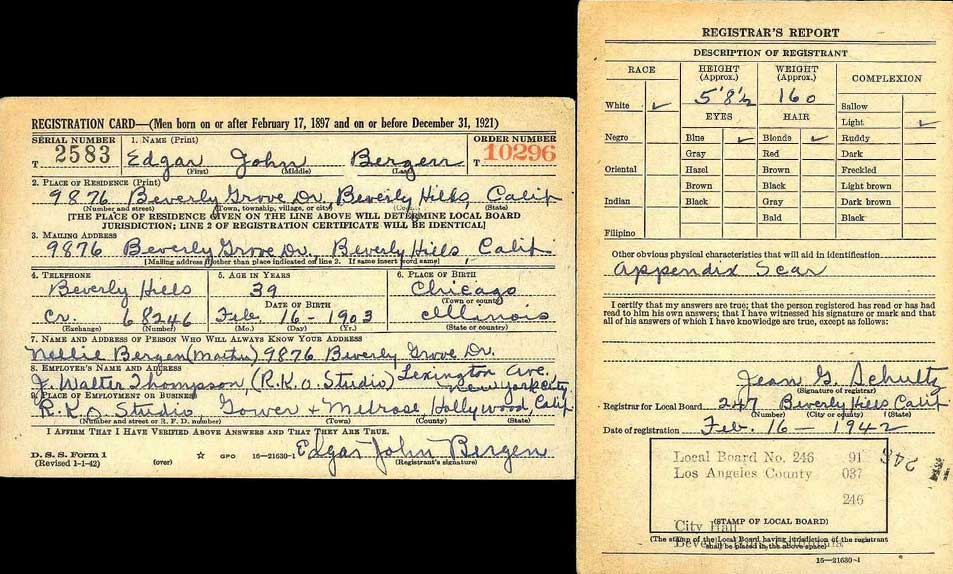 REGISTRATION CARD—(Men born on or after February 17, 1897 and on or before December 31, 1921)
SERIAL NUMBER 1. NAME (Print) ORDER NUMBER
T 2583 Edgar John Bergen T 10296
(First) (Middle) (Last)
2. PLACE OF RESIDENCE (Print)
9876 Beverly Grove Dr., Beverly Hills, Calif
(Number and street) (Town, township, village, or city) (County) (State)
[THE PLACE OF RESIDENCE GIVEN ON THE LINE ABOVE WILL DETERMINE LOCAL BOARD
JURISDICTION; LINE 2 OF REGISTRATION CERTIFICATE WILL BE IDENTICAL]
3. MAILING ADDRESS
9876 Beverly Grove Dr., Beverly Hills, Calif.
[Mailing address if other than place indicated on line 2. If same insert word same]
4. TELEPHONE 5. AGE IN YEARS 6. PLACE OF BIRTH
Beverly Hills 39 Chicago
DATE OF BIRTH (Town or county)
Cr. 68246 Feb. 16 - 1903 Illinois
(Exchange) (Number) (Mo.) (Day) (Yr.) (State or country)
7. NAME AND ADDRESS OF PERSON WHO WILL ALWAYS KNOW YOUR ADDRESS
Nellie Bergen (Mother) 9876 Beverly Grove Dr.
8. EMPLOYER'S NAME AND ADDRESS
J. Walter Thompson, (R.K.O. Studio) Lexington Ave. New York City
9. PLACE OF EMPLOYMENT OR BUSINESS
R.K.O. Studio, Gower + Melrose, Hollywood, Calif
(Number and street or R. F. D. number) (Town) (County) (State)
I AFFIRM THAT I HAVE VERIFIED ABOVE ANSWERS AND THAT THEY ARE TRUE.
D. S. S. Form 1
(Revised 1-1-42) (over) ☆ GPO 16—21630-1 Edgar John Bergen
(Registrant's signature)
REGISTRAR'S REPORT
DESCRIPTION OF REGISTRANT
RACE HEIGHT (Approx.) WEIGHT (Approx.) COMPLEXION
White ✓ 5'8½ 160 Sallow
EYES HAIR Light ✓
Negro Blue ✓ Blonde ✓ Ruddy
Gray Red Dark
Oriental Hazel Brown Freckled
Brown Black Light brown
Indian Black Gray Dark brown
Bald Black
Filipino
Other obvious physical characteristics that will aid in identification
Appendix Scar
I certify that my answers are true; that the person registered has read or has had
read to him his own answers; that I have witnessed his signature or mark and that
all of his answers of which I have knowledge are true, except as follows:
Jean G. Schultz
(Signature of registrar)
Registrar for Local Board 247 Beverly Hills Calif
(Number) (City or county) (State)
Date of registration Feb. 16 - 1942
Local Board No. 246 91 246
Los Angeles County 037
246
City Hall
(STAMP OF LOCAL BOARD)
(The stamp of the Local Board having jurisdiction of the registrant
shall be placed in the above space)
16—21630-1